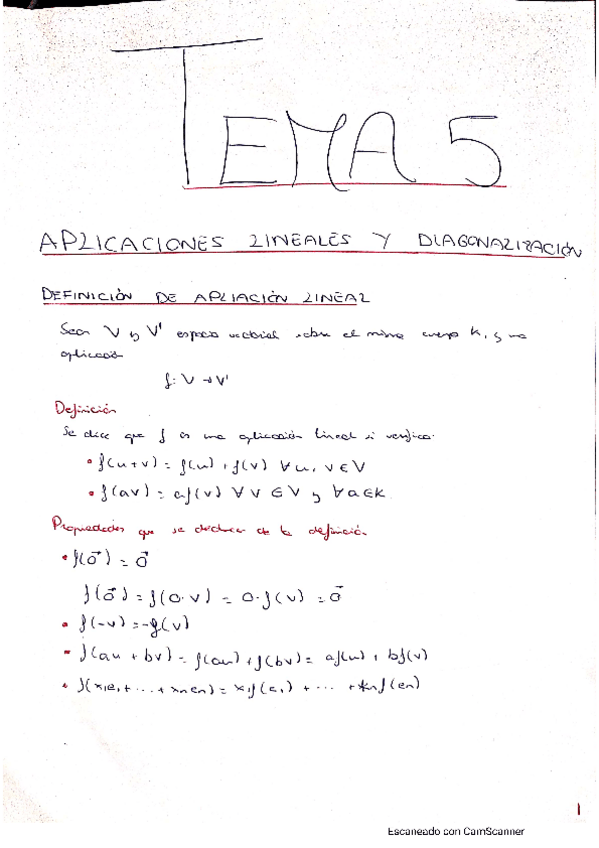 TEMA 5
APLICACIONES LINEALES Y DIAGONALIZACIÓN
DEFINICIÓN DE APLIACIÓN LINEAL
Sean V y V' espacio vectorial sobre el mismo cuerpo K, y una
aplicación
f: V → V'
Definición
Se dice que f es una aplicación lineal si verifica:
• f(u+v) = f(u) + f(v) ∀ u, v ∈ V
• f(av) = af(v) ∀ v ∈ V y ∀ a ∈ K
Propiedades que se deducen de la definición
• f(0⃗) = 0⃗
f(0⃗) = f(0·v) = 0·f(v) = 0⃗
• f(-v) = -f(v)
• f(au + bv) = f(au) + f(bv) = af(u) + bf(v)
• f(x₁e₁ + ... + xₙeₙ) = x₁f(e₁) + ... + xₙf(eₙ)
1
Escaneado con CamScanner